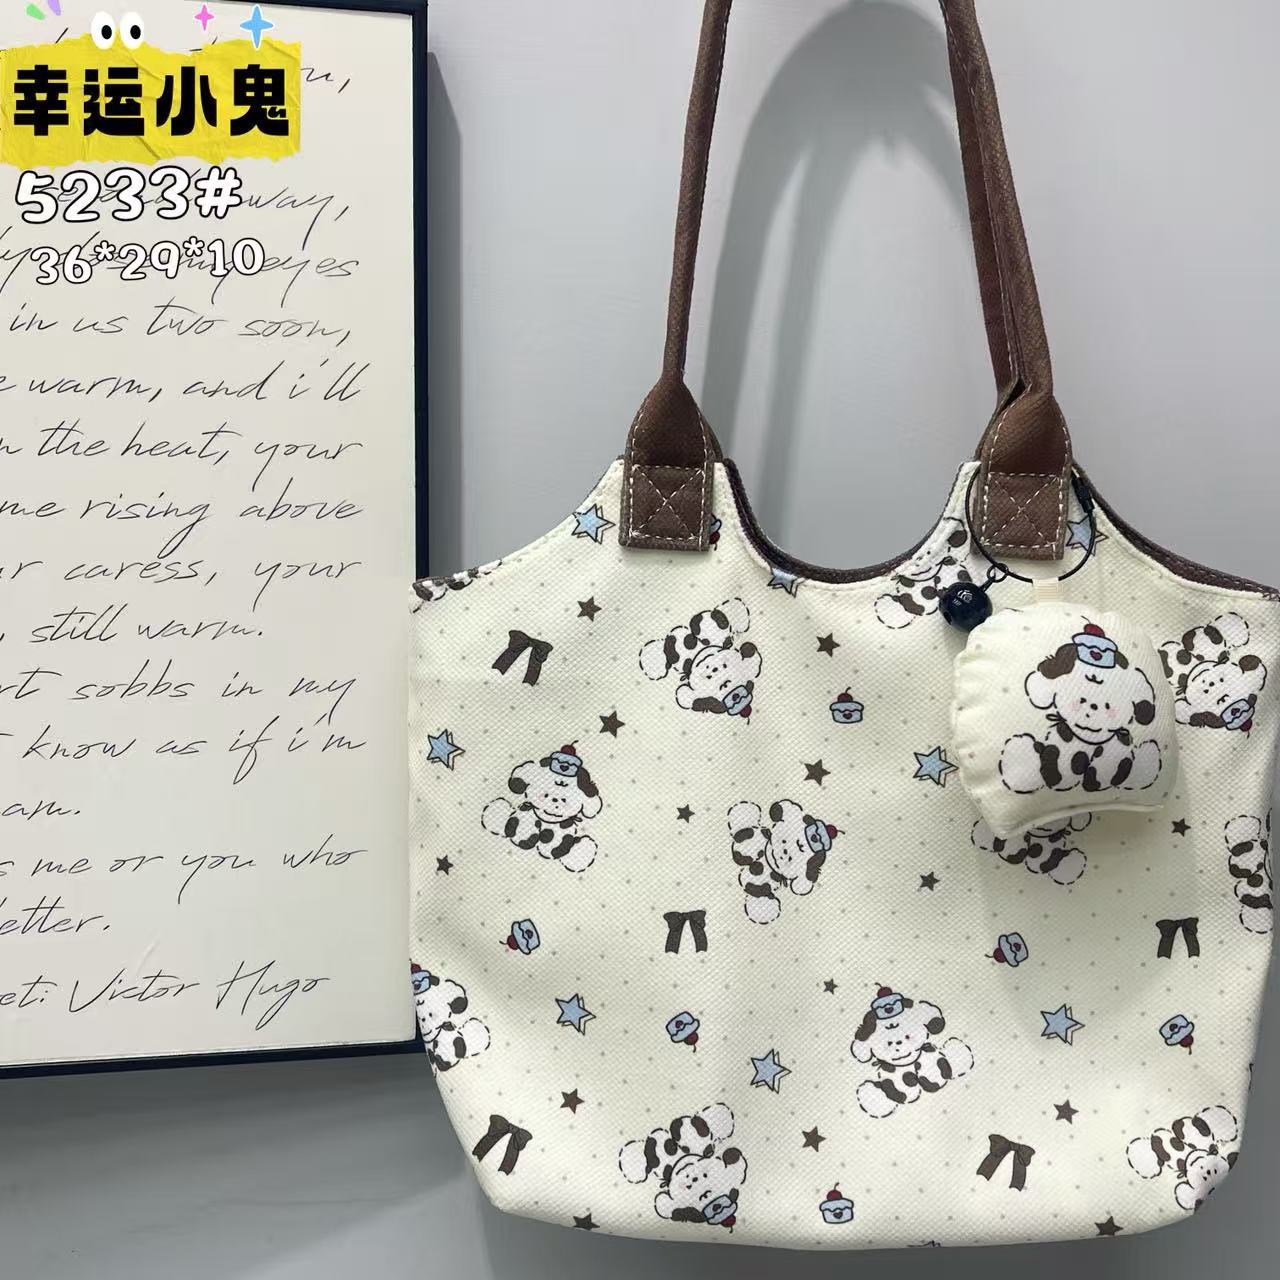 幸运小鬼
5233#
36*29*10
way,
eyes
in us two soon,
warm, and i'll
the heat, your
me rising above
caress, your
still warm.
sobbs in my
know as if i'm
am.
me or you who
etter.
et: Victor Hugo